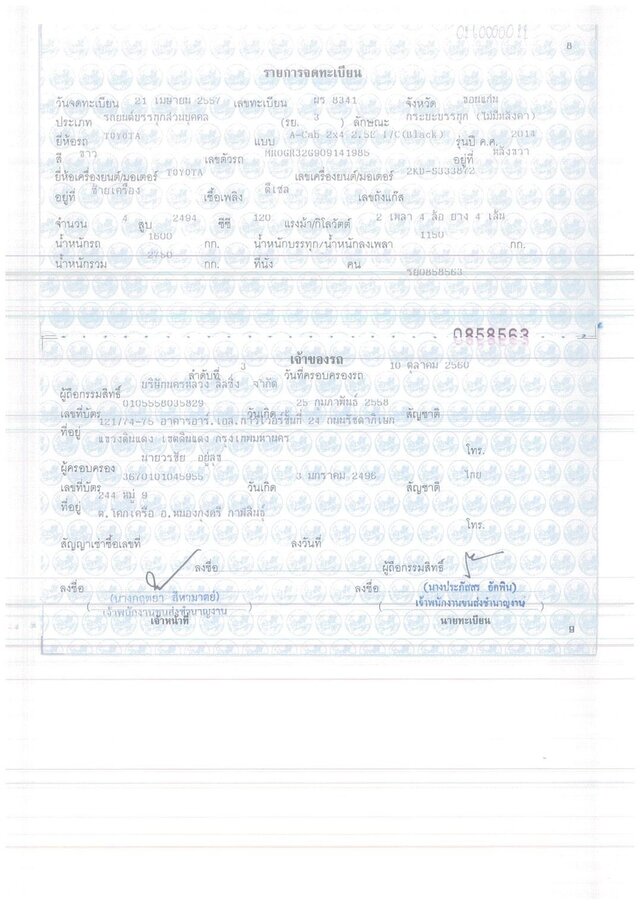 8
รายการจดทะเบียน
วันจดทะเบียน 21 เมษายน 2557 เลขทะเบียน ผร 8341 จังหวัด ขอนแก่น
ประเภท รถยนต์บรรทุกส่วนบุคคล (รย. 3 ) ลักษณะ กระบะบรรทุก (ไม่มีหลังคา)
ยี่ห้อรถ TOYOTA แบบ A-Cab 2x4 2.5E I/C(Black) รุ่นปี ค.ศ. 2014
สี ขาว เลขตัวรถ MR0GR32G909141985 อยู่ที่ หลังขวา
ยี่ห้อเครื่องยนต์/มอเตอร์ TOYOTA เลขเครื่องยนต์/มอเตอร์ 2KD-S333872
อยู่ที่ ซ้ายเครื่อง เชื้อเพลิง ดีเซล เลขถังแก๊ส
จำนวน 4 สูบ 2494 ซีซี 120 แรงม้า/กิโลวัตต์ 2 เพลา 4 ล้อ ยาง 4 เส้น
น้ำหนักรถ 1600 กก. น้ำหนักบรรทุก/น้ำหนักลงเพลา 1150 กก.
น้ำหนักรวม 2750 กก. ที่นั่ง คน
รย0858563
0858563
เจ้าของรถ
ลำดับที่ 3 วันที่ครอบครองรถ 10 ตุลาคม 2560
ผู้ถือกรรมสิทธิ์ บริษัทนครหลวง ลิสซิ่ง จำกัด
เลขที่บัตร 0105558035829 วันเกิด 25 กุมภาพันธ์ 2558 สัญชาติ
ที่อยู่ 121/74-75 อาคารอาร์.เอส.ทาวเวอร์ชั้นที่ 24 ถนนรัชดาภิเษก
แขวงดินแดง เขตดินแดง กรุงเทพมหานคร
โทร.
ผู้ครอบครอง นายวรชัย อยู่สุข
เลขที่บัตร 3670101045955 วันเกิด 3 มกราคม 2496 สัญชาติ ไทย
ที่อยู่ 244 หมู่ 9
ต.โคกเครือ อ.หนองกุงศรี กาฬสินธุ์
โทร.
สัญญาเช่าซื้อเลขที่ ลงวันที่
ลงชื่อ ผู้ถือกรรมสิทธิ์
ลงชื่อ ลงชื่อ
(นางกฤตยา สีหามาตย์) (นางประภัสสร ฮักพิน)
เจ้าพนักงานขนส่งชำนาญงาน เจ้าพนักงานขนส่งชำนาญงาน
เจ้าหน้าที่ นายทะเบียน
9